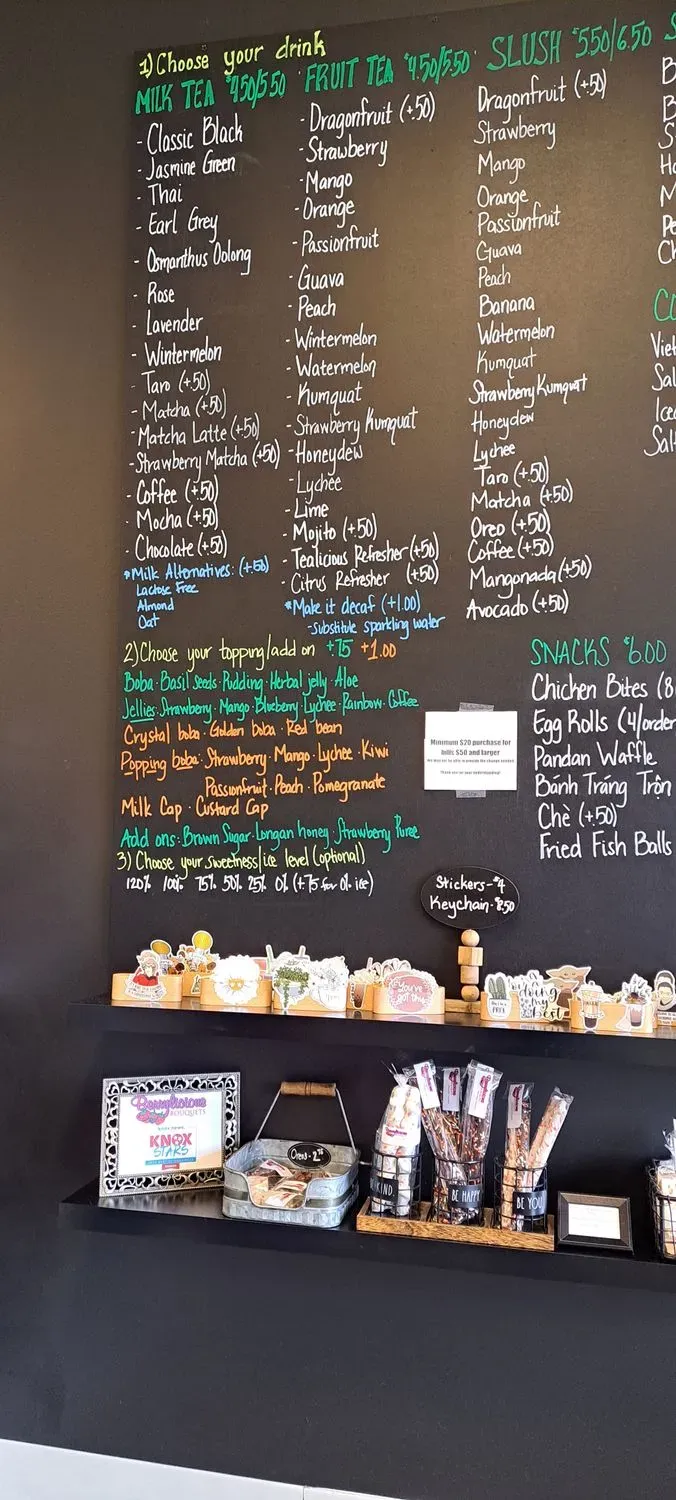 1) Choose your drink
MILK TEA $4.50/5.50
- Classic Black
- Jasmine Green
- Thai
- Earl Grey
- Osmanthus Oolong
- Rose
- Lavender
- Wintermelon
- Taro (+.50)
- Matcha (+.50)
- Matcha Latte (+.50)
- Strawberry Matcha (+.50)
- Coffee (+.50)
- Mocha (+.50)
- Chocolate (+.50)
*Milk Alternatives: (+.50)
Lactose Free
Almond
Oat
FRUIT TEA $4.50/5.50
- Dragonfruit (+.50)
- Strawberry
- Mango
- Orange
- Passionfruit
- Guava
- Peach
- Wintermelon
- Watermelon
- Kumquat
- Strawberry Kumquat
- Honeydew
- Lychee
- Lime
- Mojito (+.50)
- Tealicious Refresher (+.50)
- Citrus Refresher (+.50)
*Make it decaf (+1.00)
- substitute sparkling water
SLUSH $5.50/6.50
Dragonfruit (+.50)
Strawberry
Mango
Orange
Passionfruit
Guava
Peach
Banana
Watermelon
Kumquat
Strawberry Kumquat
Honeydew
Lychee
Taro (+.50)
Matcha (+.50)
Oreo (+.50)
Coffee (+.50)
Mangonada (+.50)
Avocado (+.50)
S
B
B
S
Ho
M
Pe
Ch
CO
Viet
Sal
Ice
Salt
2) Choose your topping/add on +.75 +1.00
Boba · Basil seeds · Pudding · Herbal jelly · Aloe
Jellies: Strawberry · Mango · Blueberry · Lychee · Rainbow · Coffee
Crystal boba · Golden boba · Red bean
Popping boba: Strawberry · Mango · Lychee · Kiwi
Passionfruit · Peach · Pomegranate
Milk Cap · Custard Cap
Add ons: Brown Sugar · Longan honey · Strawberry Puree
3) Choose your sweetness/ice level (optional)
120% 100% 75% 50% 25% 0% (+.75 for 0% ice)
Minimum $20 purchase for
bills $50 and larger
We may not be able to provide the change needed.
Thank you for your understanding!
SNACKS $6.00
Chicken Bites (8
Egg Rolls (4/order
Pandan Waffle
Bánh Tráng Trộn
Chè (+.50)
Fried Fish Balls
Stickers - $4
Keychain - $8.50
You've
got this
Berrylicious
BOUQUETS
KNOX
STARS
Oreos - 2.75
KIND
BE HAPPY
BE YOU